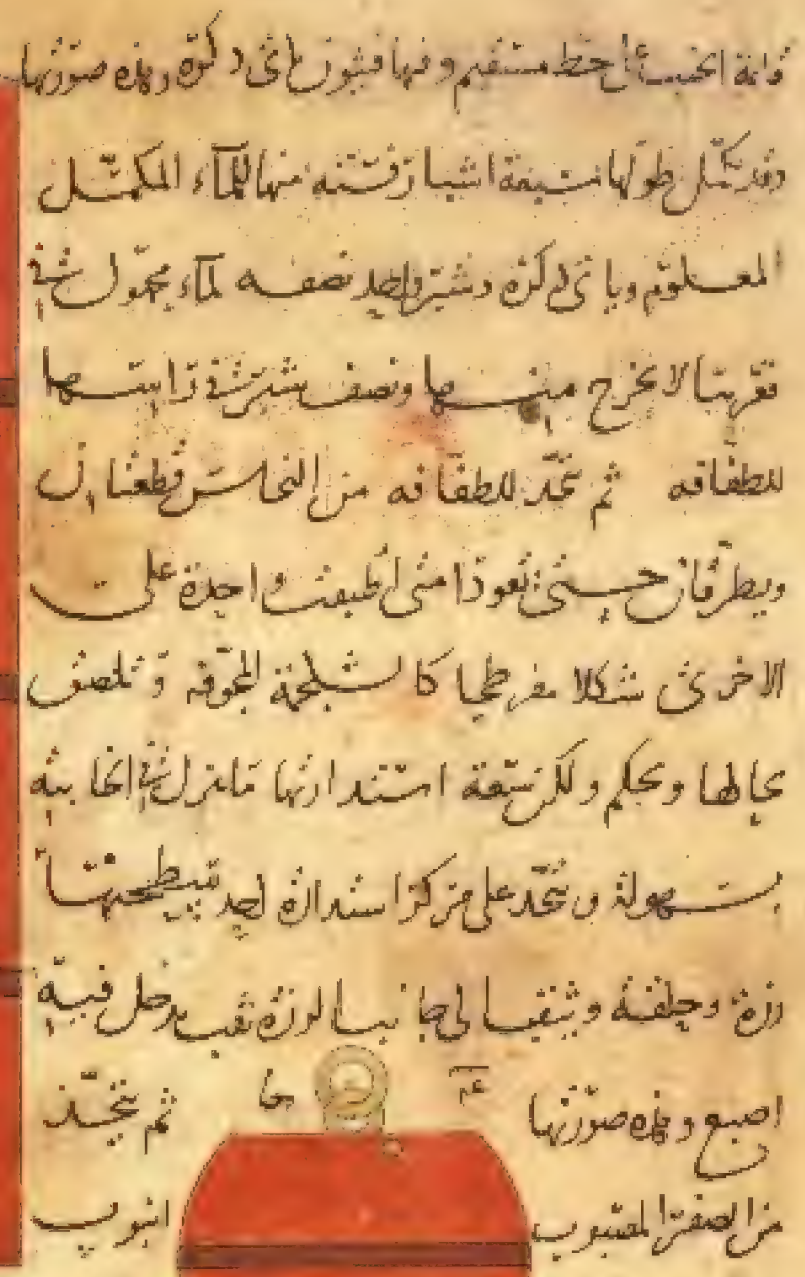 قائمة الجنب على خط مستقيم وفيها فيثون ياتى ذكره وهذه صورتها
وقد شكل طولها سبعة اشبار ستة منها للماء المكمل
المعلوم وياتى ذكره وشبر واحد نصفه لماء مجمول في
تعرها لا يخرج منها ونصف شبر في رأسها
للطفافه ثم تتخذ للطفافه من النحاس قطعتان
ويطرقان حتى تعودا متى اطبقت واحدة على
الاخرى شكلا مفرطحا كالشلجمة المجوفه وتلصق
بحالها ويحكم ولكن سعة استدارتها ما تنزل في الخابيه
بسهولة ويتخذ على مركز استدارة احد تبطيحتها
رزة وحلقة ويثقب الى جانب الرزة ثقب يدخل فيه
اصبع وهذه صورتها ثم يتخذ
من الصفر المصبوب انبوب